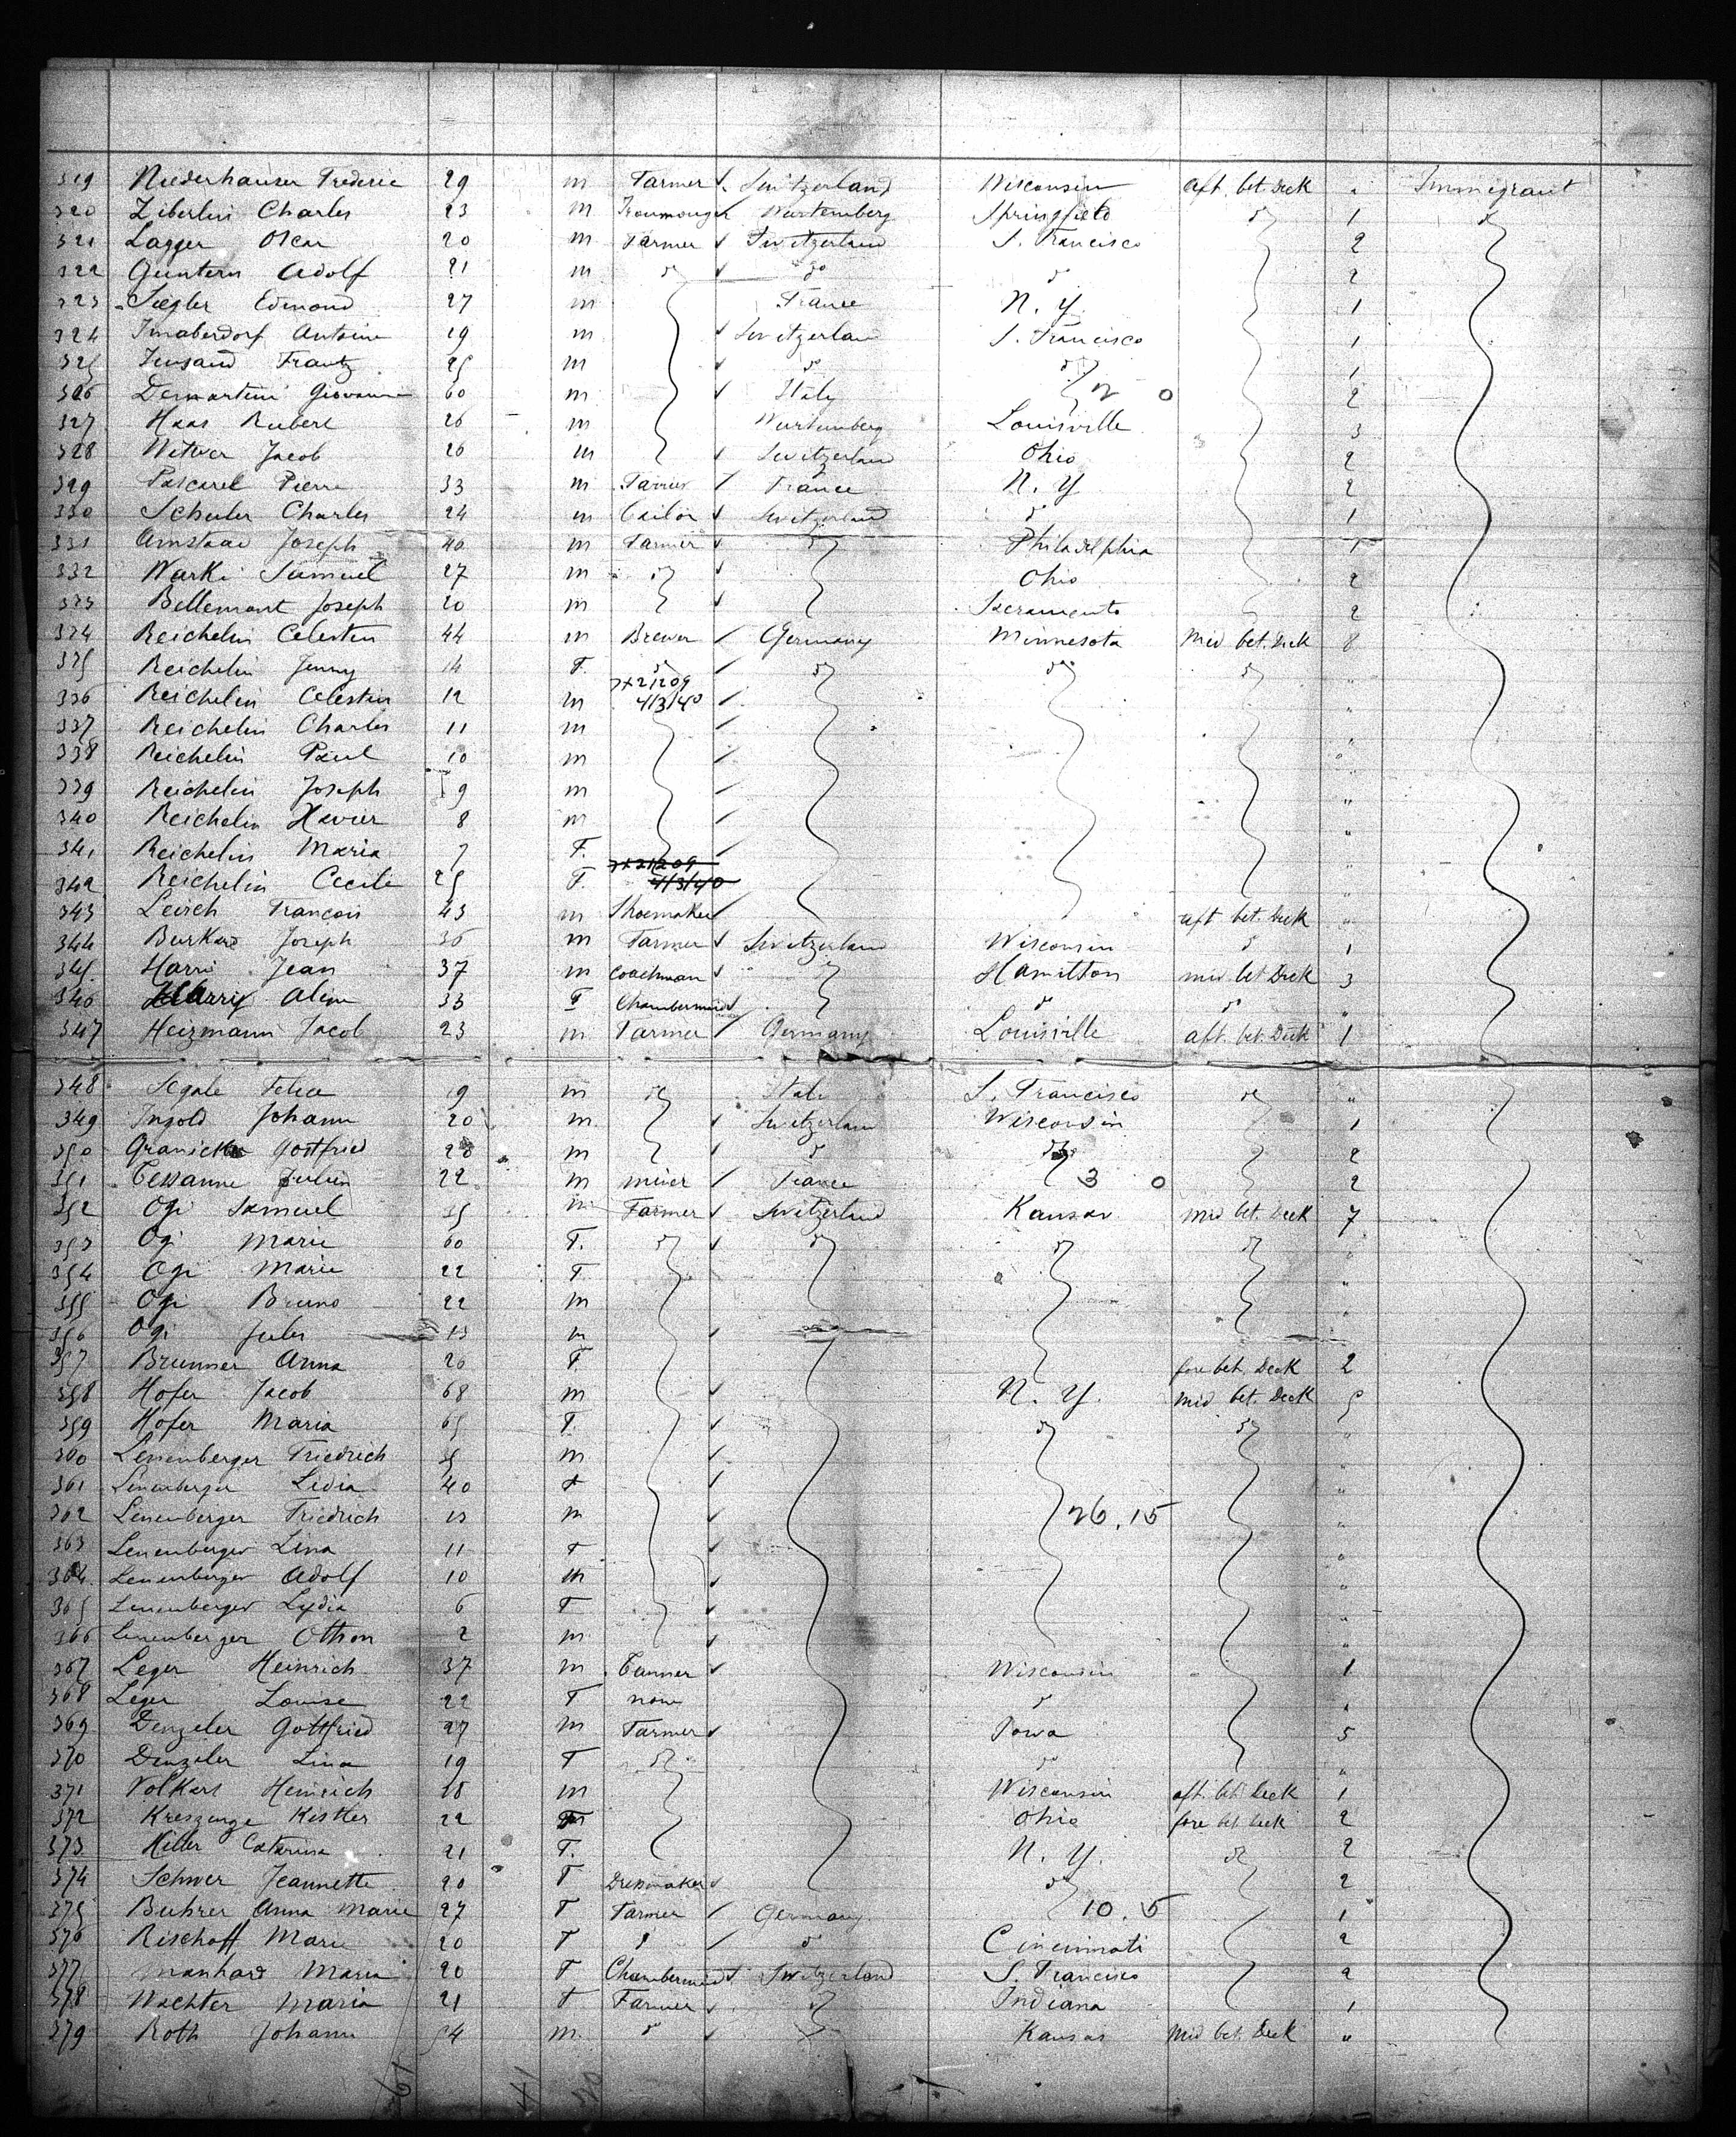 319 Niederhauser Frederic 29 m Farmer Switzerland Wisconsin aft. bet. Deck " Immigrant
320 Ziberlin Charles 23 m Wurtemberg Springfield do 1 do
321 Lagger Oscar 20 m Farmer Switzerland S. Francisco 2
322 Guntern Adolf 21 m do do do 2
323 Siegler Edmond 27 m France N. Y. 1
324 Imaberdorf Antoine 19 m Switzerland S. Francisco 1
325 Frantz 25 m do do 1
326 Demartini Giovanni 60 m Italy 2 0 2
327 Haas Robert 26 m Wurtemberg Louisville 3
328 Witwer Jacob 20 m Switzerland Ohio 2
329 Pascarel Pierre 33 m France N. Y 2
330 Schuler Charles 24 m Switzerland do 1
331 Amstaad Joseph 40 m Farmer do Philadelphia 1
332 Warki Samuel 27 m do Ohio 2
333 Bellemont Joseph 20 m Sacramento 2
334 Reichelin Celestin 44 m Brewer Germany Minnesota Mid bet. Deck 8
335 Reichelin Jenny 14 F. do do do do "
7x21209
336 Reichelin Celestin 12 m 4/3/40 "
337 Reichelin Charles 11 m "
338 Reichelin Paul 10 m "
339 Reichelin Joseph 9 m "
340 Reichelin Xavier 8 m "
341 Reichelin Maria 7 F. "
7x21209
342 Reichelin Cecile 25 F. 4/3/40
343 Leisch Francois 43 m Shoemaker aft bet. Deck "
344 Burkard Joseph 36 m Farmer Switzerland Wisconsin do 1
345 Harri Jean 37 m Coachman do Hamilton mid. bet Deck 3
346 Harry Aline 33 F Chambermaid do do "
347 Heizmann Jacob 23 m Farmer Germany Louisville aft. bet. Deck 1
348 Segale Felice 19 m do Italy S. Francisco do "
349 Ingold Johann 20 m Switzerland Wisconsin 1
350 Gottfried 28 m do do 2
351 Julien 22 m miner France 3 0 2
352 Ogi Samuel 55 m Farmer Switzerland Kansas Mid bet. Deck 7
353 Ogi Marie 60 F. do do do do "
354 Ogi Marie 22 F. "
355 Ogi Bruno 22 m "
356 Ogi Jules 13 m
357 Brunner Anna 20 F fore bet. Deck 2
358 Hofer Jacob 68 m N. Y. Mid bet. Deck 9
359 Hofer Maria 65 F. do do "
360 Leuenberger Friedrich m "
361 Leuenberger Lidia 40 F "
362 Leuenberger Friedrich 13 m 26.15 "
363 Leuenberger Lina 11 F "
364 Leuenberger Adolf 10 m "
365 Leuenberger Lydia 6 F "
366 Leuenberger Othon 2 m "
367 Leger Heinrich 37 m Wisconsin 1
368 Leger Louise 22 F none do "
369 Denzeler Gottfried 27 m Farmer Iowa 5
370 Denzeler Lina 19 F do do "
371 Volkart Heinrich 18 m Wisconsin aft. bet. Deck 1
372 Kistler 22 Ohio fore bet. Deck 2
373 Keller Catarina 21 F. N. Y. do 2
374 Schwer Jeannette 20 F Dressmaker do 2
375 Buhrer Anna Marie 27 F Farmer Germany 10.5 1
376 Bischoff Marie 20 F do do Cincinnati 2
377 Manhard Maria 20 F Chambermaid Switzerland S. Francisco 2
378 Wachter Maria 21 F Farmer do Indiana 1
379 Roth Johann 54 m. do Kansas Mid bet. Deck "